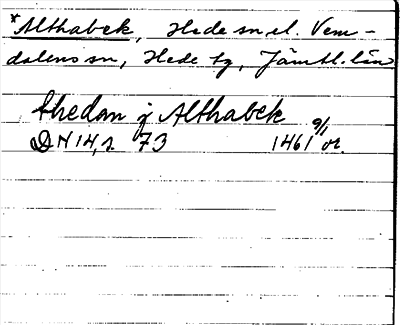 *Althabek, Hede sn el. Vem-
dalens sn, Hede tg, Jämtl. län
thedan j Althabek
DN 14, s. 73 1461 9/1 or.